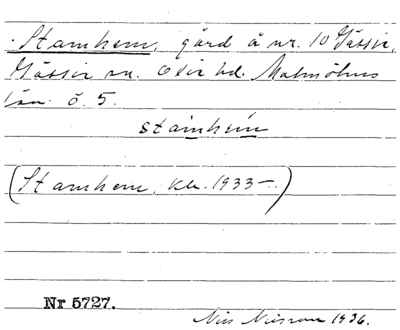 Stamhem, gård å nr. 10 Gässie,
Gässie sn. Oxie hd. Malmöhus
län. ö. 5.
stamhem
(Stamhem, kk. 1933-.)
Nr 5727.
Nils Nilsson 1936.